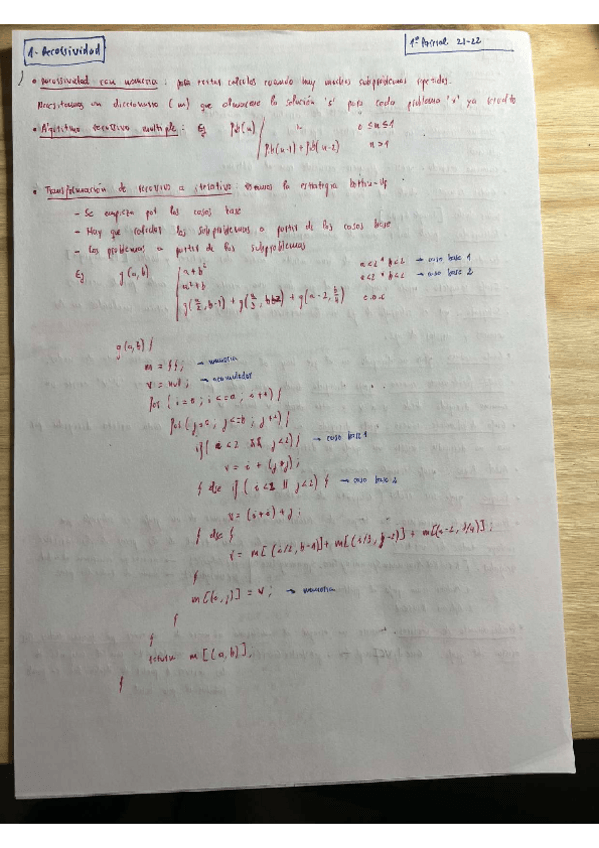 1.- Recursividad
1º Parcial 21-22
• Recursividad con memoria: para evitar calculos cuando hay muchos subproblemas repetidos.
Necesitamos un diccionario (m) que almacene la solución 's' para cada problema 'x' ya resuelto
• Algoritmo recursivo multiple: Ej fib(n) { n 0 ≤ n ≤ 1
fib(n-1) + fib(n-2) n > 1
• Transformación de recursivo a iterativo: usamos la estrategia bottom-up
- Se empieza por los casos base
- Hay que calcular los subproblemas a partir de los casos base
- Los problemas a partir de los subproblemas
Ej g(a,b) { a + b² a<2 ^ b<2 → caso base 1
a² + b a<2 v b<2 → caso base 2
g(a/2, b-1) + g(a/3, b-2) + g(a-2, b/4) e.o.c
g(a,b) {
m = {}; → memoria
v = null; → acumulador
for (i=0; i<=a; i++) {
for (j=0; j<=b; j++) {
if (i<2 && j<2) { → caso base 1
v = i + (j*j);
} else if (i<2 || j<2) { → caso base 2
v = (i*i) + j;
} else {
v = m[(i/2, b-1)] + m[(i/3, j-2)] + m[(a-2, j/4)];
}
m[(i,j)] = v; → memoria
}
}
return m[(a,b)];
}